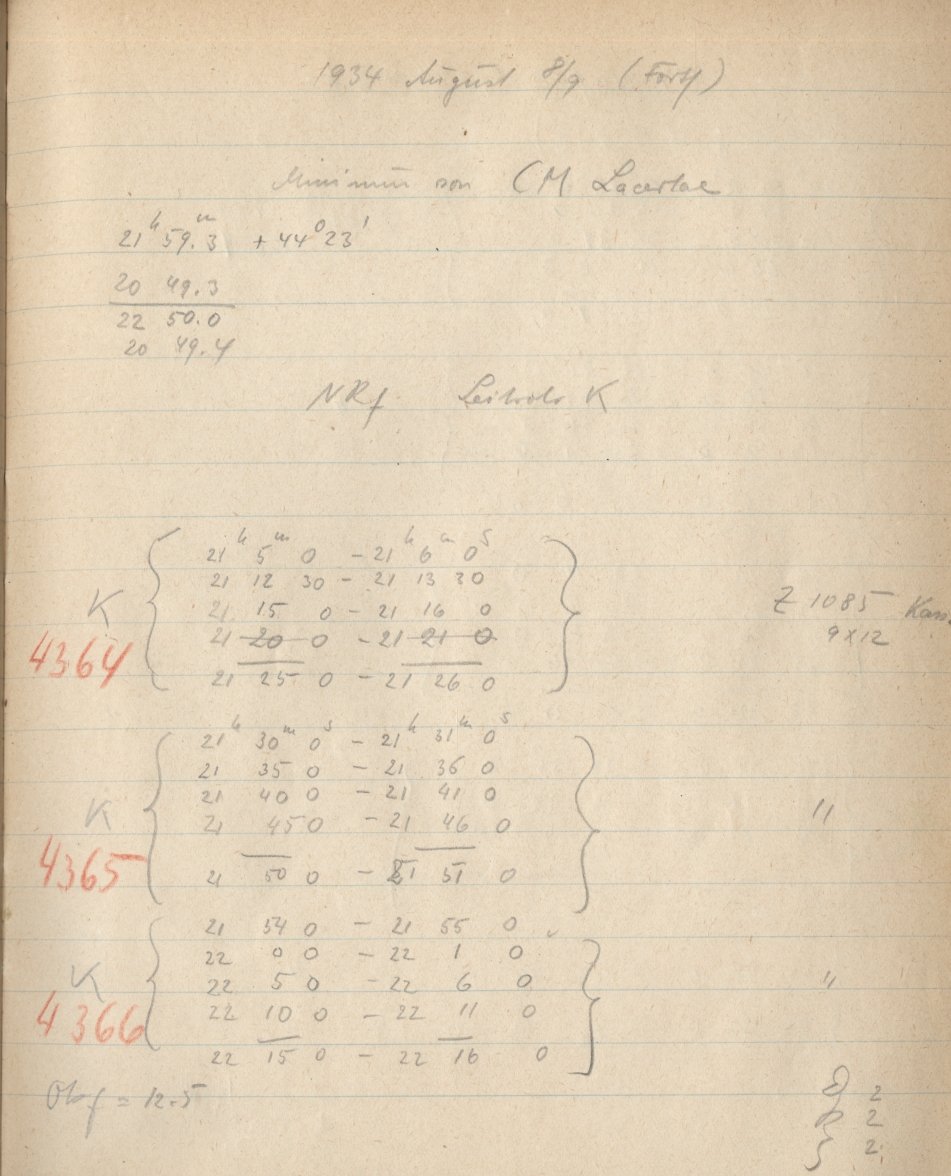 1934 August 8/9 (Forts)
Minimum von CM Lacertae
21ʰ 59.ᵐ3 + 44° 23'
20 49.3
22 50.0
20 49.4
NRf Leitrohr K
21ʰ 5ᵐ 0 - 21ʰ 6ᵐ 0ˢ
21 12 30 - 21 13 30
K 21 15 0 - 21 16 0 Z 1085
4364 21 20 0 - 21 21 0 9x12
21 25 0 - 21 26 0
21ʰ 30ᵐ 0ˢ - 21ʰ 31ᵐ 0ˢ
21 35 0 - 21 36 0
21 40 0 - 21 41 0
K 21 45 0 - 21 46 0 "
4365 21 50 0 - 21 51 0
21 54 0 - 21 55 0
22 0 0 - 22 1 0
K 22 5 0 - 22 6 0 "
4366 22 10 0 - 22 11 0
22 15 0 - 22 16 0
Obf = 12.5
2
2
2